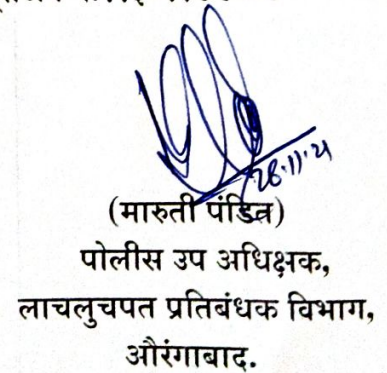 26.11.21
(मारुती पंडित)
पोलीस उप अधिक्षक,
लाचलुचपत प्रतिबंधक विभाग,
औरंगाबाद.